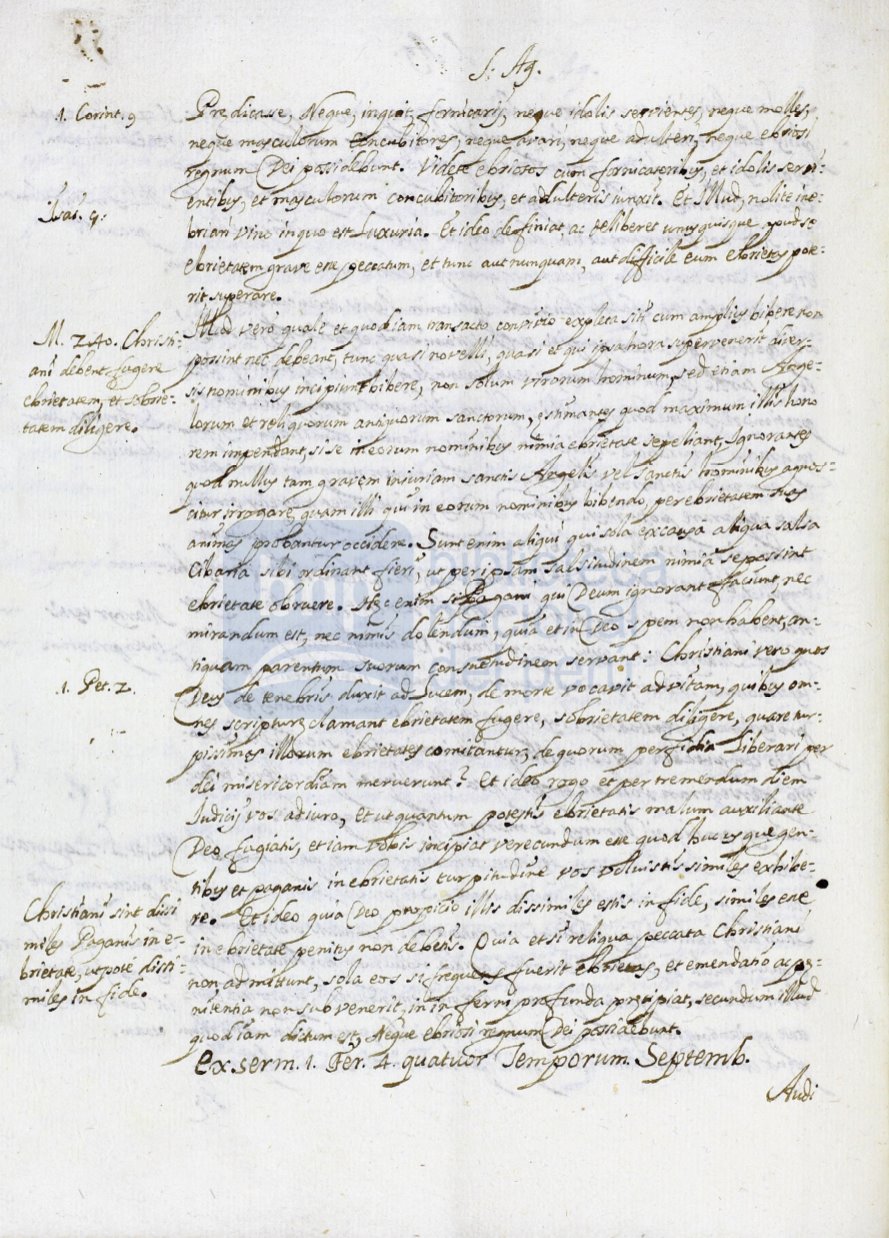 S. Ag.
1. Corint. 9
Predicase, Neque, inquit, fornicarij, neque idolis servientes, neque molles,
neque masculorum concubitores, neque avari, neque adulteri, neque ebriosi
regnum Dei possidebunt. Videte ebriosos cum fornicatoribus, et idolis servi-
entibus, et masculorum concubitoribus, et adulteris iunxit. Et illud, nolite ine-
Isai. 9.
briari vino in quo est Luxuria. Et ideo definiat, ac deliberet unusquisque apud se
ebrietatem grave esse peccatum, et tunc aut nunquam, aut difficile eum ebrietas pote-
rit superare.
Illud vero quale et quod iam transacto convivio expleta siti cum amplius bibere non
M. 240. Christi-
ani debent fugere
ebrietatem, et sobrie-
tatem diligere.
possint nec debeant, tunc quasi novelli, quasi et qui ipsa hora supervenerit diver-
sis nominibus incipiunt bibere, non solum vivorum hominum, sed etiam Ange-
lorum et reliquorum antiquorum sanctorum, estimantes quod maximum illis hono
rem impendant, si se in eorum nominibus nimia ebrietate sepeliant, Ignorantes
quod nullus tam gravem iniuriam sanctis Angelis vel sanctis hominibus agnos-
citur irrogare, quam illi qui in eorum nominibus bibendo, per ebrietatem suas
animas probantur occidere. Sunt enim aliqui qui sola ex causa aliqua salsa
Cibaria sibi ordinant fieri, ut per ipsam salsitudinem nimia se possint
ebrietate obruere. Hec enim si Pagani qui Deum ignorant faciunt, nec
mirandum est, nec nimis dolendum, quia et in Deo spem non habent, an-
tiquam parentum suorum consuetudinem servant: Christiani vero quos
1. Pet. 2.
Deus de tenebris duxit ad Lucem, de morte vocavit ad vitam, quibus om-
nes scripture clamant ebrietatem fugere, sobrietatem diligere, quare tur-
pissimas illorum ebrietates comitantur, de quorum perfidia Liberari per
dei misericordiam meruerunt? Et ideo rogo et per tremendum diem
Iudicij vos adiuro, et ut quantum potestis ebrietatis malum auxiliante
Deo fugiatis, et iam vobis incipiat verecundum esse quod hucusque gen-
tibus et paganis in ebrietatis turpitudine vos voluistis similes exhibe-
Christiani sint dissi
miles Paganis in e-
brietate, ut poté dissi-
miles in fide.
re. Et ideo quia Deo propicio illis dissimiles estis in fide, similes esse
in ebrietate penitus non debetis. Quia et si reliqua peccata Christiani
non admittunt, sola eos si frequens fuerit ebrietas, et emendatio ac pe-
nitentia non subvenerit, in inferni profunda precipiat, secundum illud
quod iam dictum est, Neque ebriosi regnum Dei possidebunt.
ex serm. 1. Fer. 4. quatuor Temporum. Septemb.
Audi